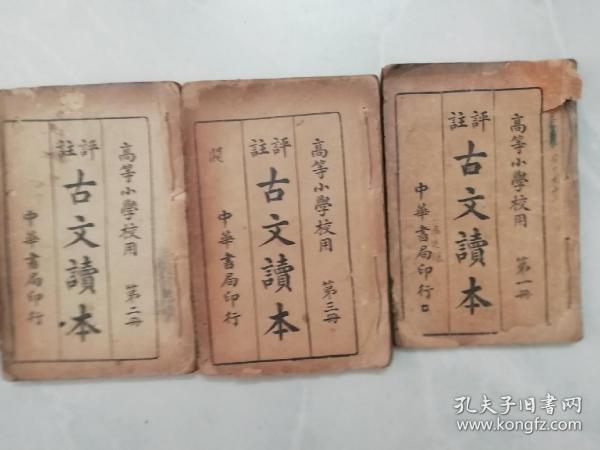 高等小學校用 第二冊
評註
古文讀本
中華書局印行
高等小學校用 第三冊
評註
古文讀本
中華書局印行
高等小學校用 第一冊
評註
古文讀本
中華書局印行
孔夫子旧书网
www.kongfz.com